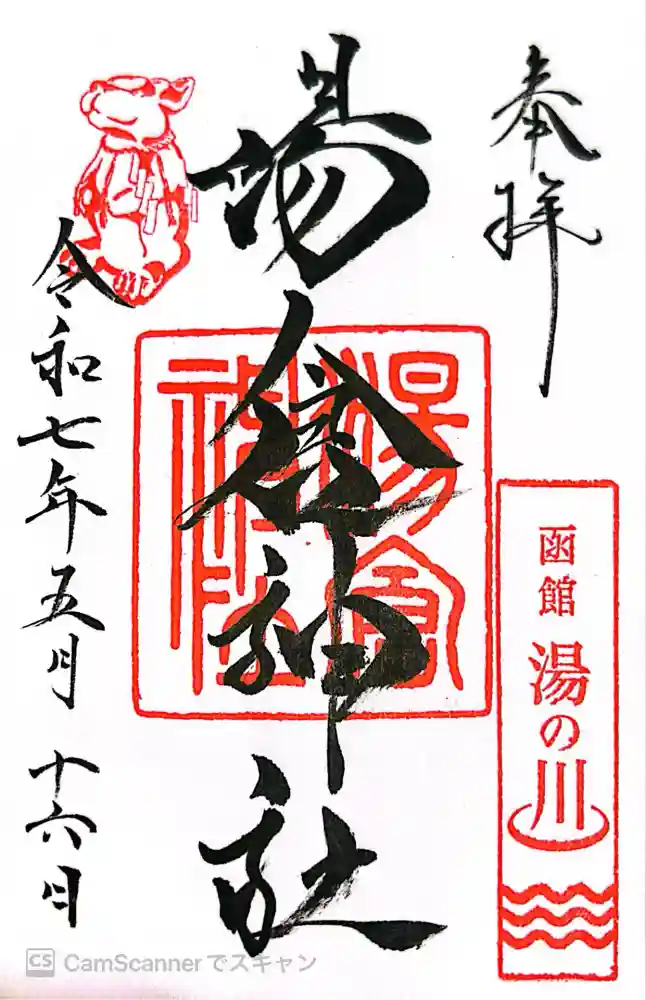 奉拝
湯倉神社
函館
湯の川
令和七年五月十六日
CS CamScannerでスキャン